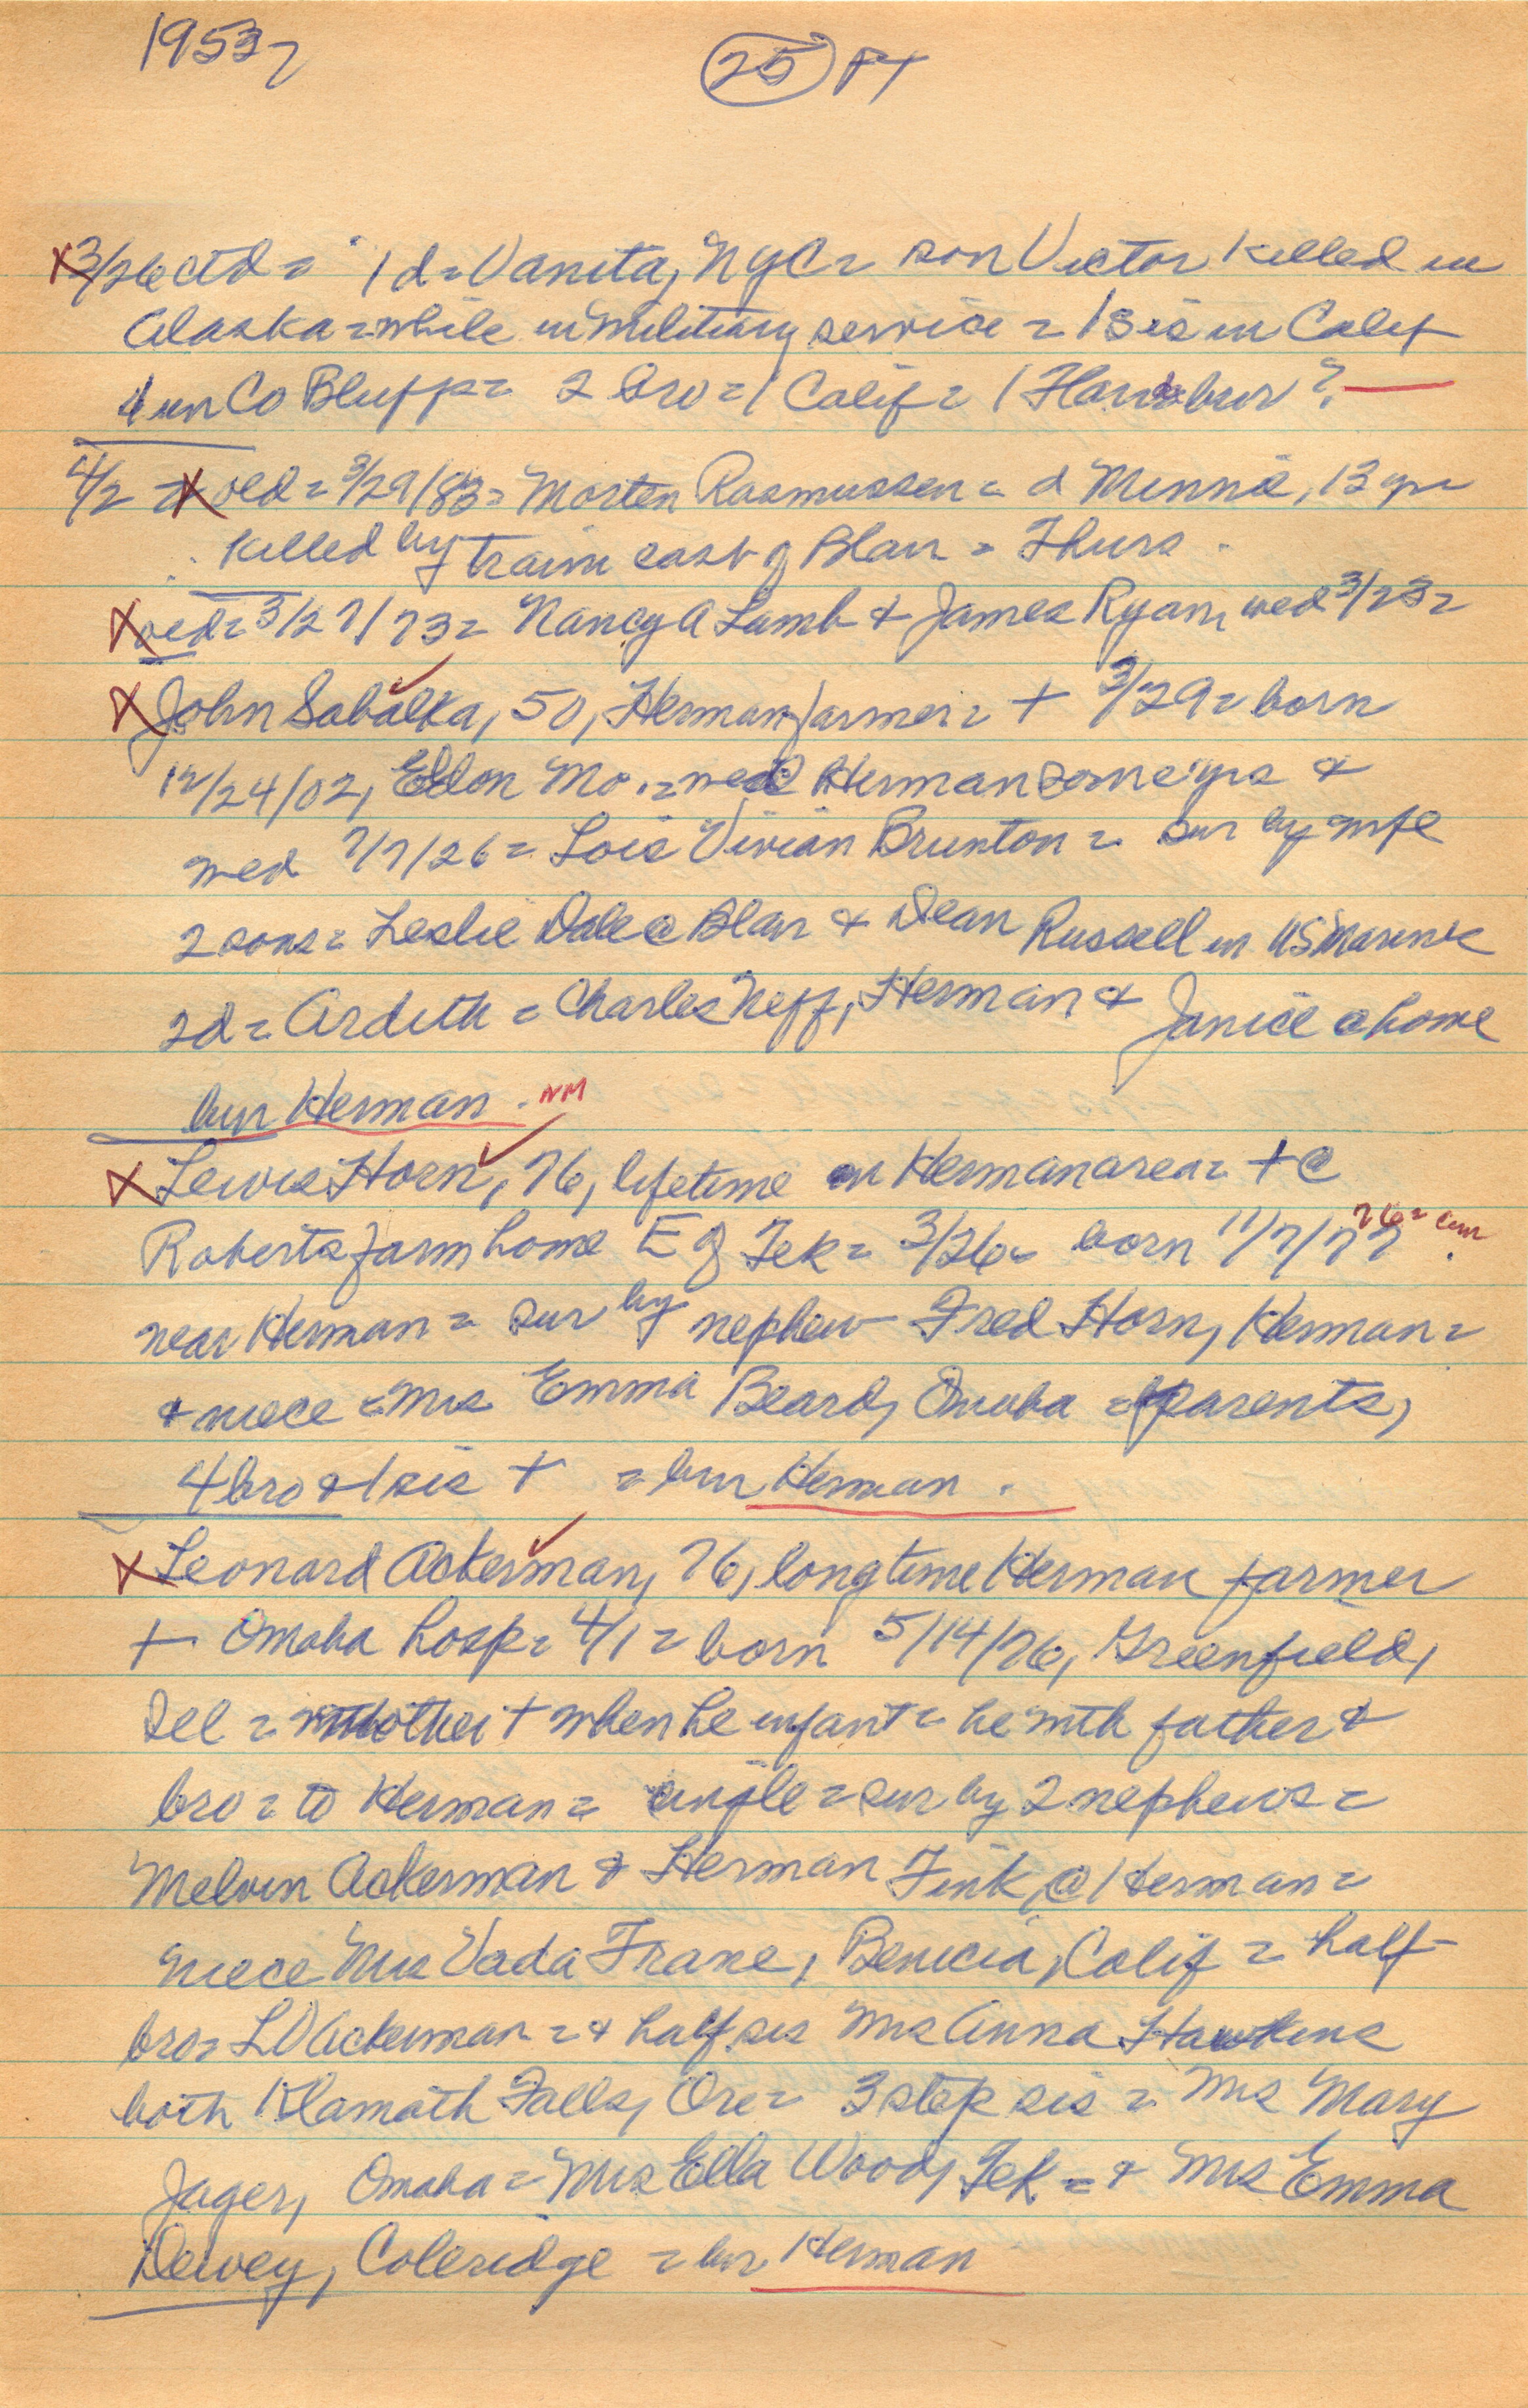 1953
25 PT
3/26 ctd = 1 d = Vanita, NYC = son Victor killed in
Alaska = while in military service = 1 sis in Calif
4 in Co Bluffs = 2 bro = 1 Calif = 1 bur ?
4/2 = old = 3/29/83 = Morten Rasmussen = d Minnie, 13 yr =
killed by train east of Blair = Thurs.
old = 3/27/73 = Nancy A Lamb & James Ryan, wed 3/23 =
John Sabalka, 50, Herman farmer = + 3/29 = born
12/24/02, Eldon Mo. = Herman some yrs &
wed 7/7/26 = Lois Vivian Brunton = sur by wife
2 sons = Leslie Dale @ Blair & Dean Russell in US Marine
2d = Ardith = Charles Neff, Herman & Janice @ home
bur Herman. NM
Lewis Horn, 76, lifetime in Herman area = + @
Roberts farm home E of Tek = 3/26 = born 11/7/77 76 = cem
near Herman = sur by nephew Fred Horn, Herman =
& niece = Mrs Emma Beard, Omaha = parents,
4 bro & 1 sis + = bur Herman.
Leonard Ackerman, 76, longtime Herman farmer
+ Omaha hosp = 4/1 = born 5/14/76, Greenfield,
Ill = mother + when he infant = he with father &
bro = to Herman = single = sur by 2 nephews =
Melvin Ackerman & Herman Fink, @ Herman =
niece Mrs Vada Frane, Benicia, Calif = half
bro = L D Ackerman = & half sis Mrs Anna Hawkins
both Klamath Falls, Ore = 3 step sis = Mrs Mary
Jager, Omaha = Mrs Ella Wood, Tek = & Mrs Emma
Dewey, Coleridge = bur Herman